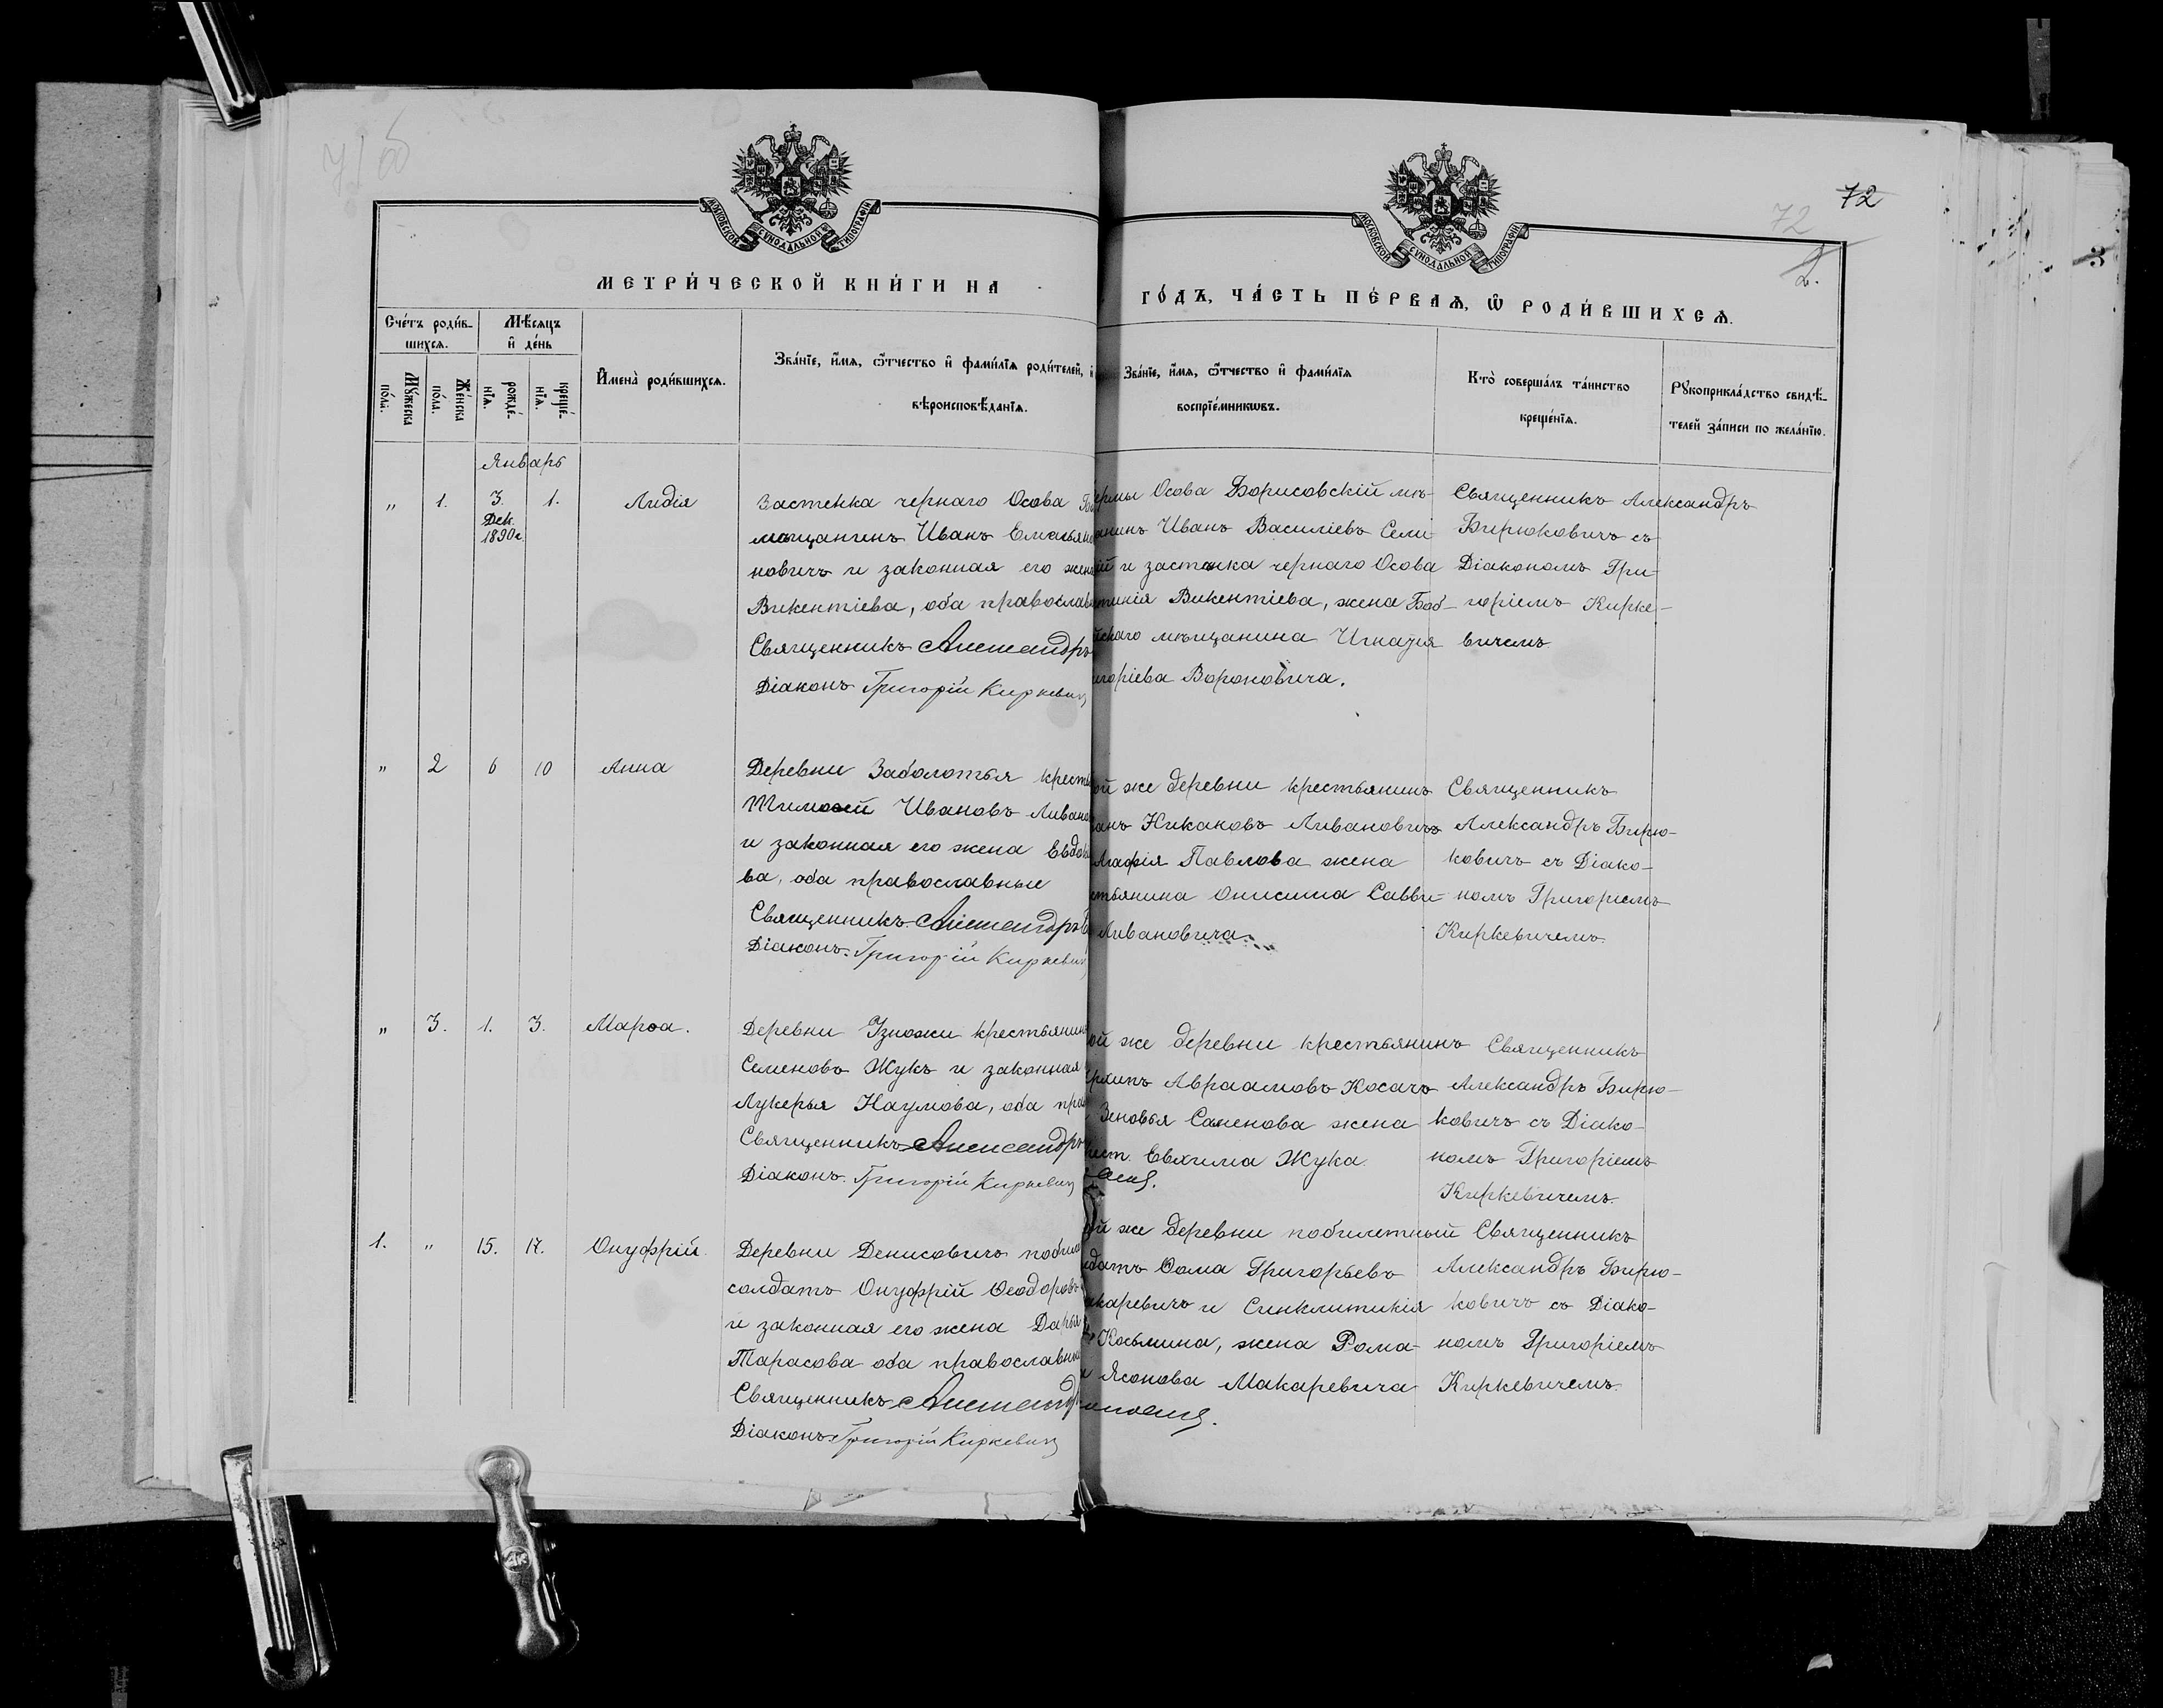 72
72
2.
3
МОСКОВСКОЙ СѴНОДАЛЬНОЙ ТИПОГРАФІИ
МОСКОВСКОЙ СѴНОДАЛЬНОЙ ТИПОГРАФІИ
МЕТРИ́ЧЕСКОЙ КНИ́ГИ НА
ГО́ДЪ, ЧА́СТЬ ПЕ́РВАѦ, Ѡ҆ РОДИ́ВШИХСѦ.
Сче́тъ роди́в-
шихсѧ.
Мѣ́сѧцъ
и҆ де́нь
Мꙋ́жеска
по́ла.
Же́нска
по́ла.
рожде́-
нїѧ.
креще́-
нїѧ.
И҆мена̀ роди́вшихсѧ.
Зва́нїе, и҆́мѧ, ѻ҆́тчество и҆ фами́лїѧ роди́телей, и҆
вѣроисповѣ́данїѧ.
Зва́нїе, и҆́мѧ, ѻ҆́тчество и҆ фами́лїѧ
воспрїе́мникѡвъ.
Кто̀ соверша́лъ та́инство
креще́нїѧ.
Рꙋкоприкла́дство свидѣ́-
телей за́писи по жела́нїю.
Январь
„ 1. 3. 1. Лидія
Дек.
1890г
Застенка чернаго Осова
мѣщанинъ Иванъ Емельян
новичъ и законная его жена
Викентіева, оба православ
Священникъ Александръ
Діаконъ Григорій Киркевичъ
ермы Осова Борисовскій мѣ-
анинъ Иванъ Василіевъ Семи
ій и застѣнка чернаго Осова
тинія Викентіева, жена Боб-
йскаго мѣщанина Игнатія
игоріева Вороновича.
Священникъ Александръ
Бирюковичъ съ
Діакономъ Гри-
горіемъ Кирке-
вичемъ
„ 2 6 10 Анна
Деревни Заболотья крест
Тимоѳей Ивановъ Ливано
и законная его жена Евдо
ва, оба православные
Священникъ Александръ
Діаконъ Григорій Киркевичъ
ой же деревни крестьянинъ
анъ Никаковъ Ливановичъ
Агафія Павлова жена
стьянина Онисима Савви-
Ливановича.
Священникъ
Александръ Бирю-
ковичъ съ Діако-
номъ Григоріемъ
Киркевичемъ.
„ 3. 1. 3. Марѳа.
Деревни Узножи крестьянин
Семеновъ Жукъ и законная
Лукерья Наумова, оба пра
Священникъ Александръ
Діаконъ Григорій Киркевичъ
ой же деревни крестьянинъ
рхипъ Авраамовъ Косачъ
Зеновья Семенова жена
ест. Евхима Жука.
Священникъ
Александръ Бирю-
ковичъ съ Діако-
номъ Григоріемъ
Киркевичемъ.
1. „ 15. 17. Онуфрій
Деревни Денисовичъ побил
солдатъ Онуфрій Ѳеодоровъ
и законная его жена Дарья
Тарасова оба православны
Священникъ Александр
Діаконъ Григорій Киркевичъ
ой же деревни побилетный
лдатъ Ѳома Григорьевъ
акаревичъ и Синклитикія
Косьмина, жена Рома-
Ясонова Макаревича
Священникъ
Александръ Бирю-
ковичъ съ Діако-
номъ Григоріемъ
Киркевичемъ.